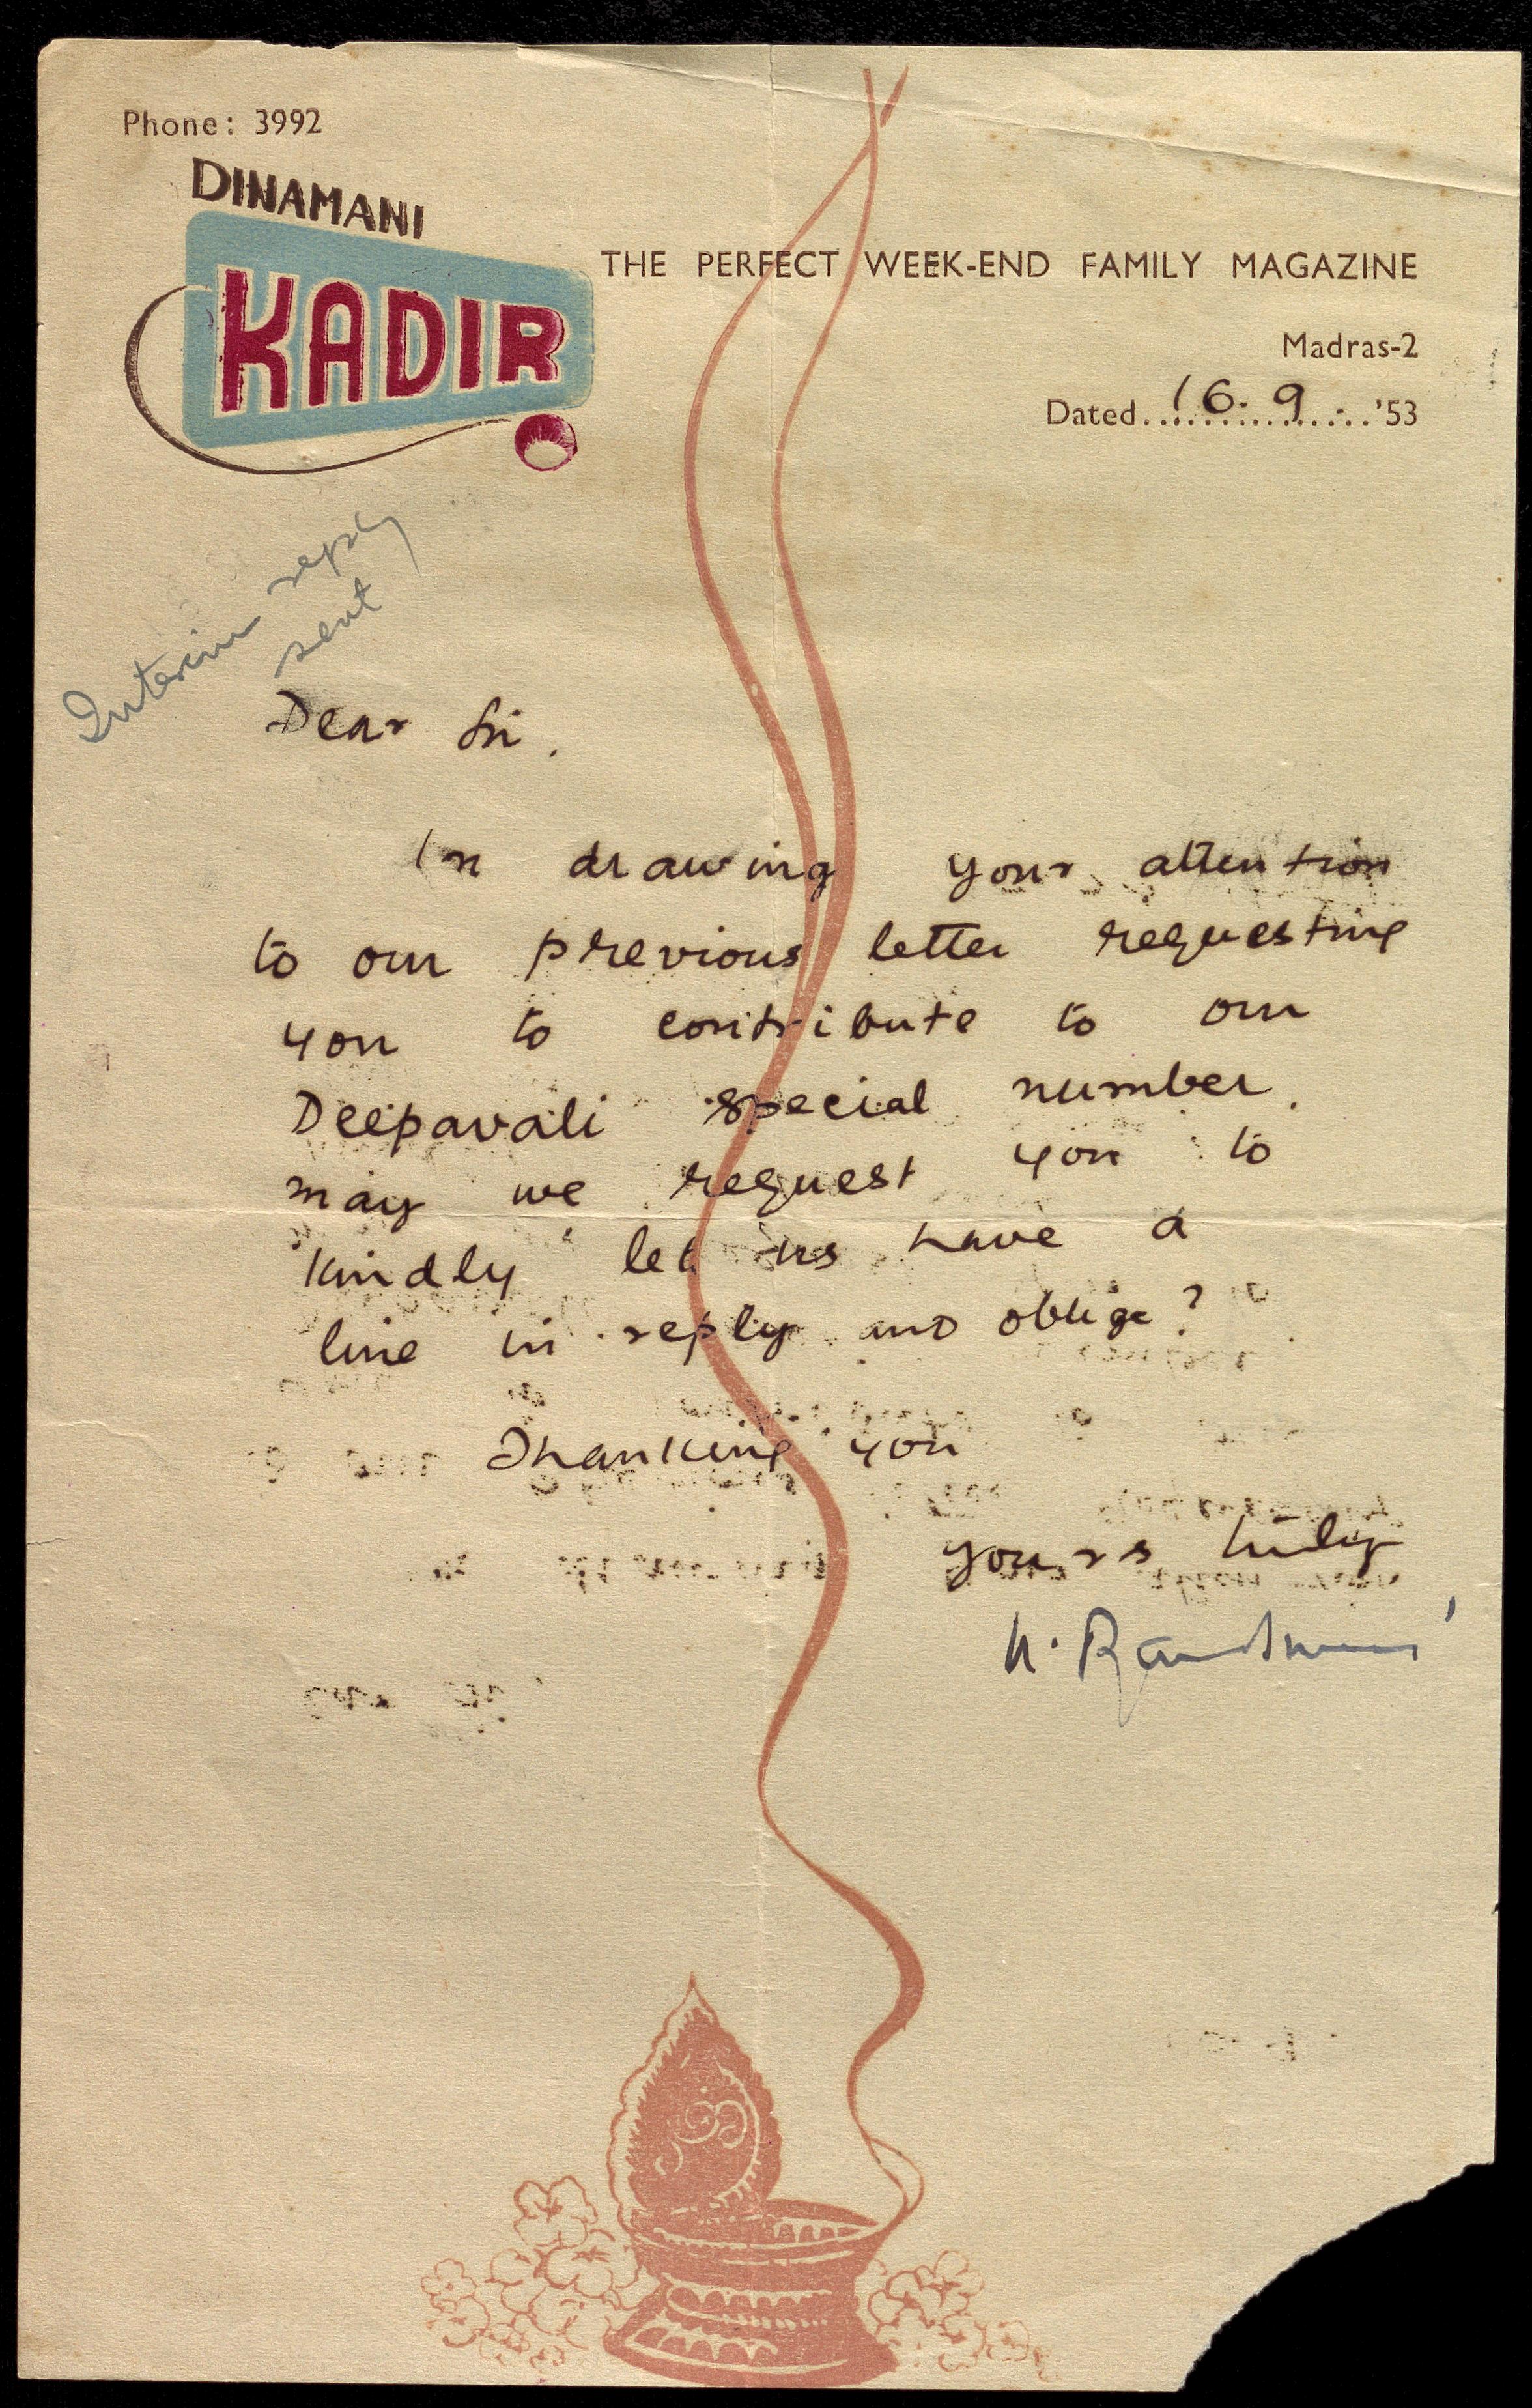 Phone: 3992
DINAMANI
KADIR
THE PERFECT WEEK-END FAMILY MAGAZINE
Madras-2
Dated 16.9. '53
Interim reply
sent
Dear Sir.
In drawing your attention
to our previous letter requesting
you to contribute to our
Deepavali special number.
may we request you to
kindly let us have a
line in reply and oblige?
Thanking you
yours truly